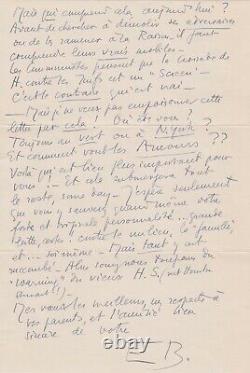 Mais qui comprend cela aujourd'hui ?
Avant de chercher à démolir ses adversaires
ou de les ramener à la Raison, il faut
comprendre leurs vrais mobiles —
Les Communistes pensent que la croisade de
H. contre les Juifs est un "
C'est le contraire qui est vrai —
— Mais je ne veux pas empoisonner cette
lettre par cela ! Où êtes-vous ?
Toujours au vert ou à ??
Et comment vont les Amours ??
Voilà qui est bien plus important pour
vous... Et cela submergera tout
le reste, . J'espère seulement
que vous y sauverez quand même votre
forte et originale personnalité...
lutte, certes : contre le milieu, la "famille"
et... soi-même — Mais tant y ont
succombé — Alors, souvenons du
"warning" du vieux H. S.
Mes vœux les meilleurs, mes respects à
vos parents, et l'amitié bien
sincère de votre
E B.
stamps-books.com